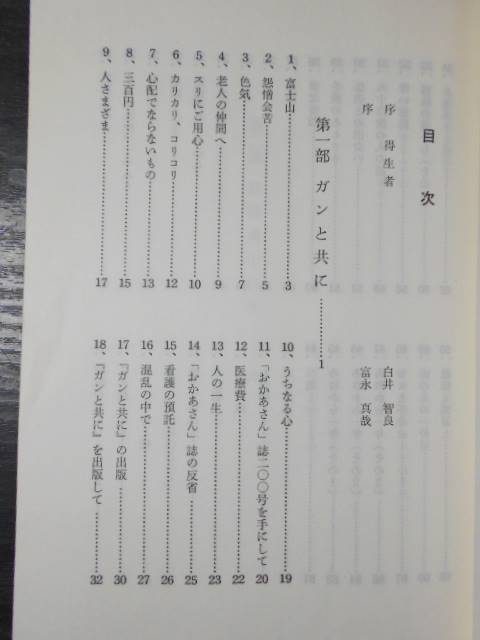 目次
序 得生者 白井 智良
序 富永 真哉
第一部 ガンと共に…………1
1、富士山…………3
2、怨憎会苦…………5
3、色気…………7
4、老人の仲間へ…………9
5、スリにご用心…………10
6、カリカリ、コリコリ…………12
7、心配でならないもの…………13
8、三百円…………15
9、人さまざま…………17
10、うちなる心…………19
11、「おかあさん」誌二〇〇号を手にして…………20
12、医療費…………22
13、人の一生…………23
14、「おかあさん」誌の反省…………25
15、看護の預託…………26
16、混乱の中で…………27
17、『ガンと共に』の出版…………30
18、『ガンと共に』を出版して…………32